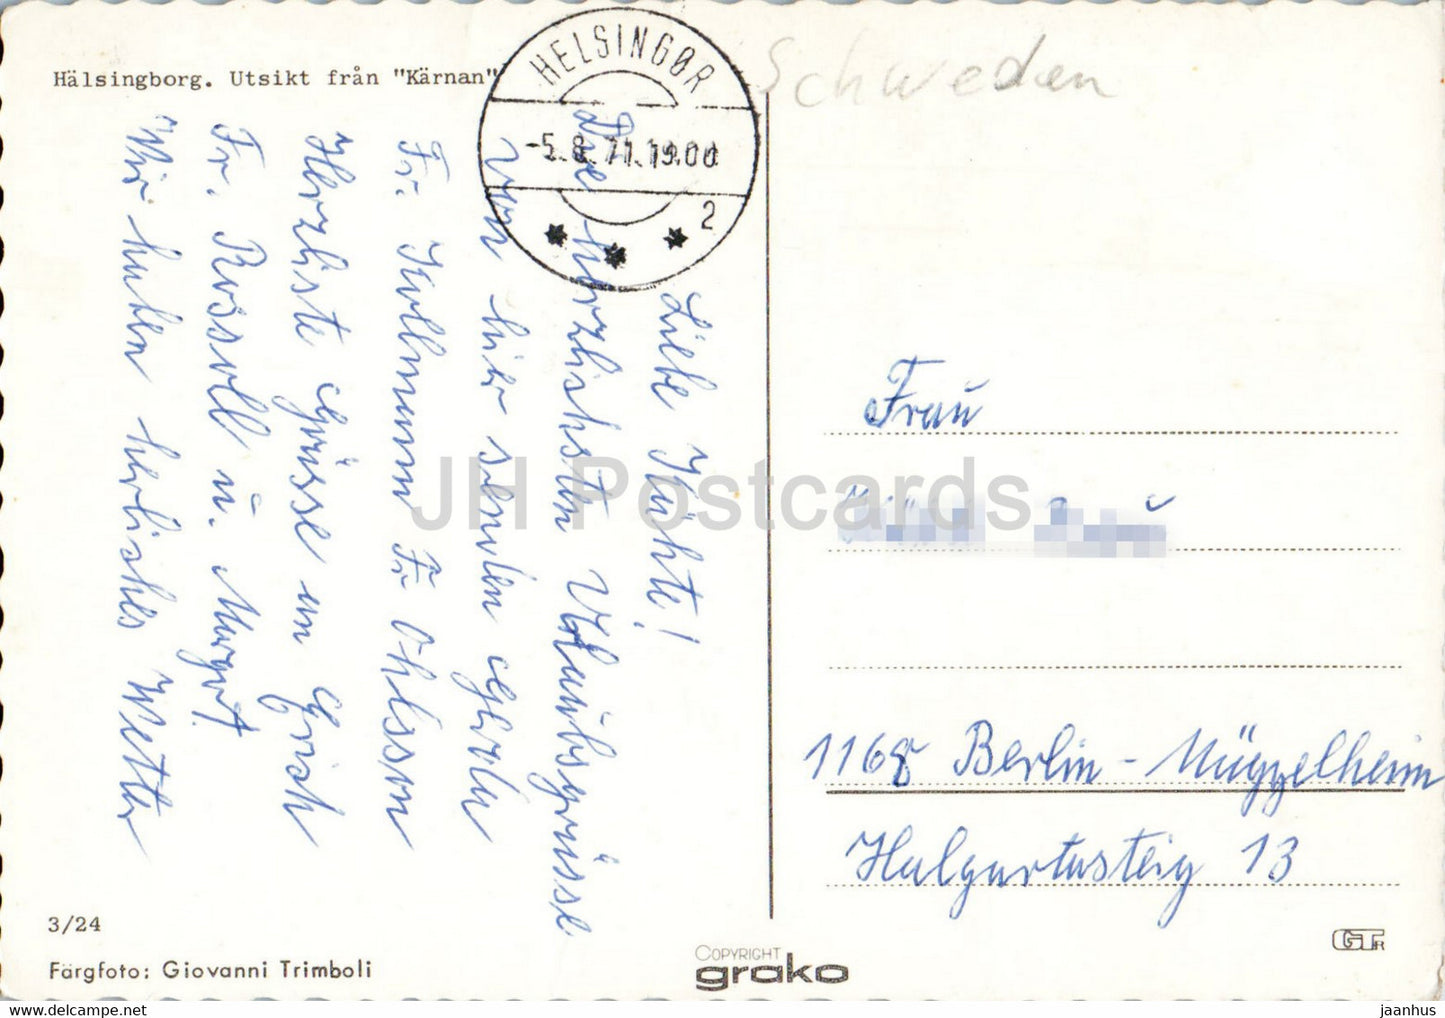 Hälsingborg. Utsikt från "Kärnan"
HELSINGØR
-5.8.71.19.00
2
Schweden
Liebe Käthe!
Die herzlichsten Urlaubsgrüsse
von hier senden Gerda
Fr. Kollmann Fr Ohlssen
Herzliste Grüsse an Erich
Fr. Rossoll u. Margot
Wir haben herlisches Wetter
Frau
1168 Berlin - Müggelheim
Halgartersteig 13
3/24
Färgfoto: Giovanni Trimboli
COPYRIGHT
grako
GTR
JH Postcards
www.delcampe.net
jaanhus